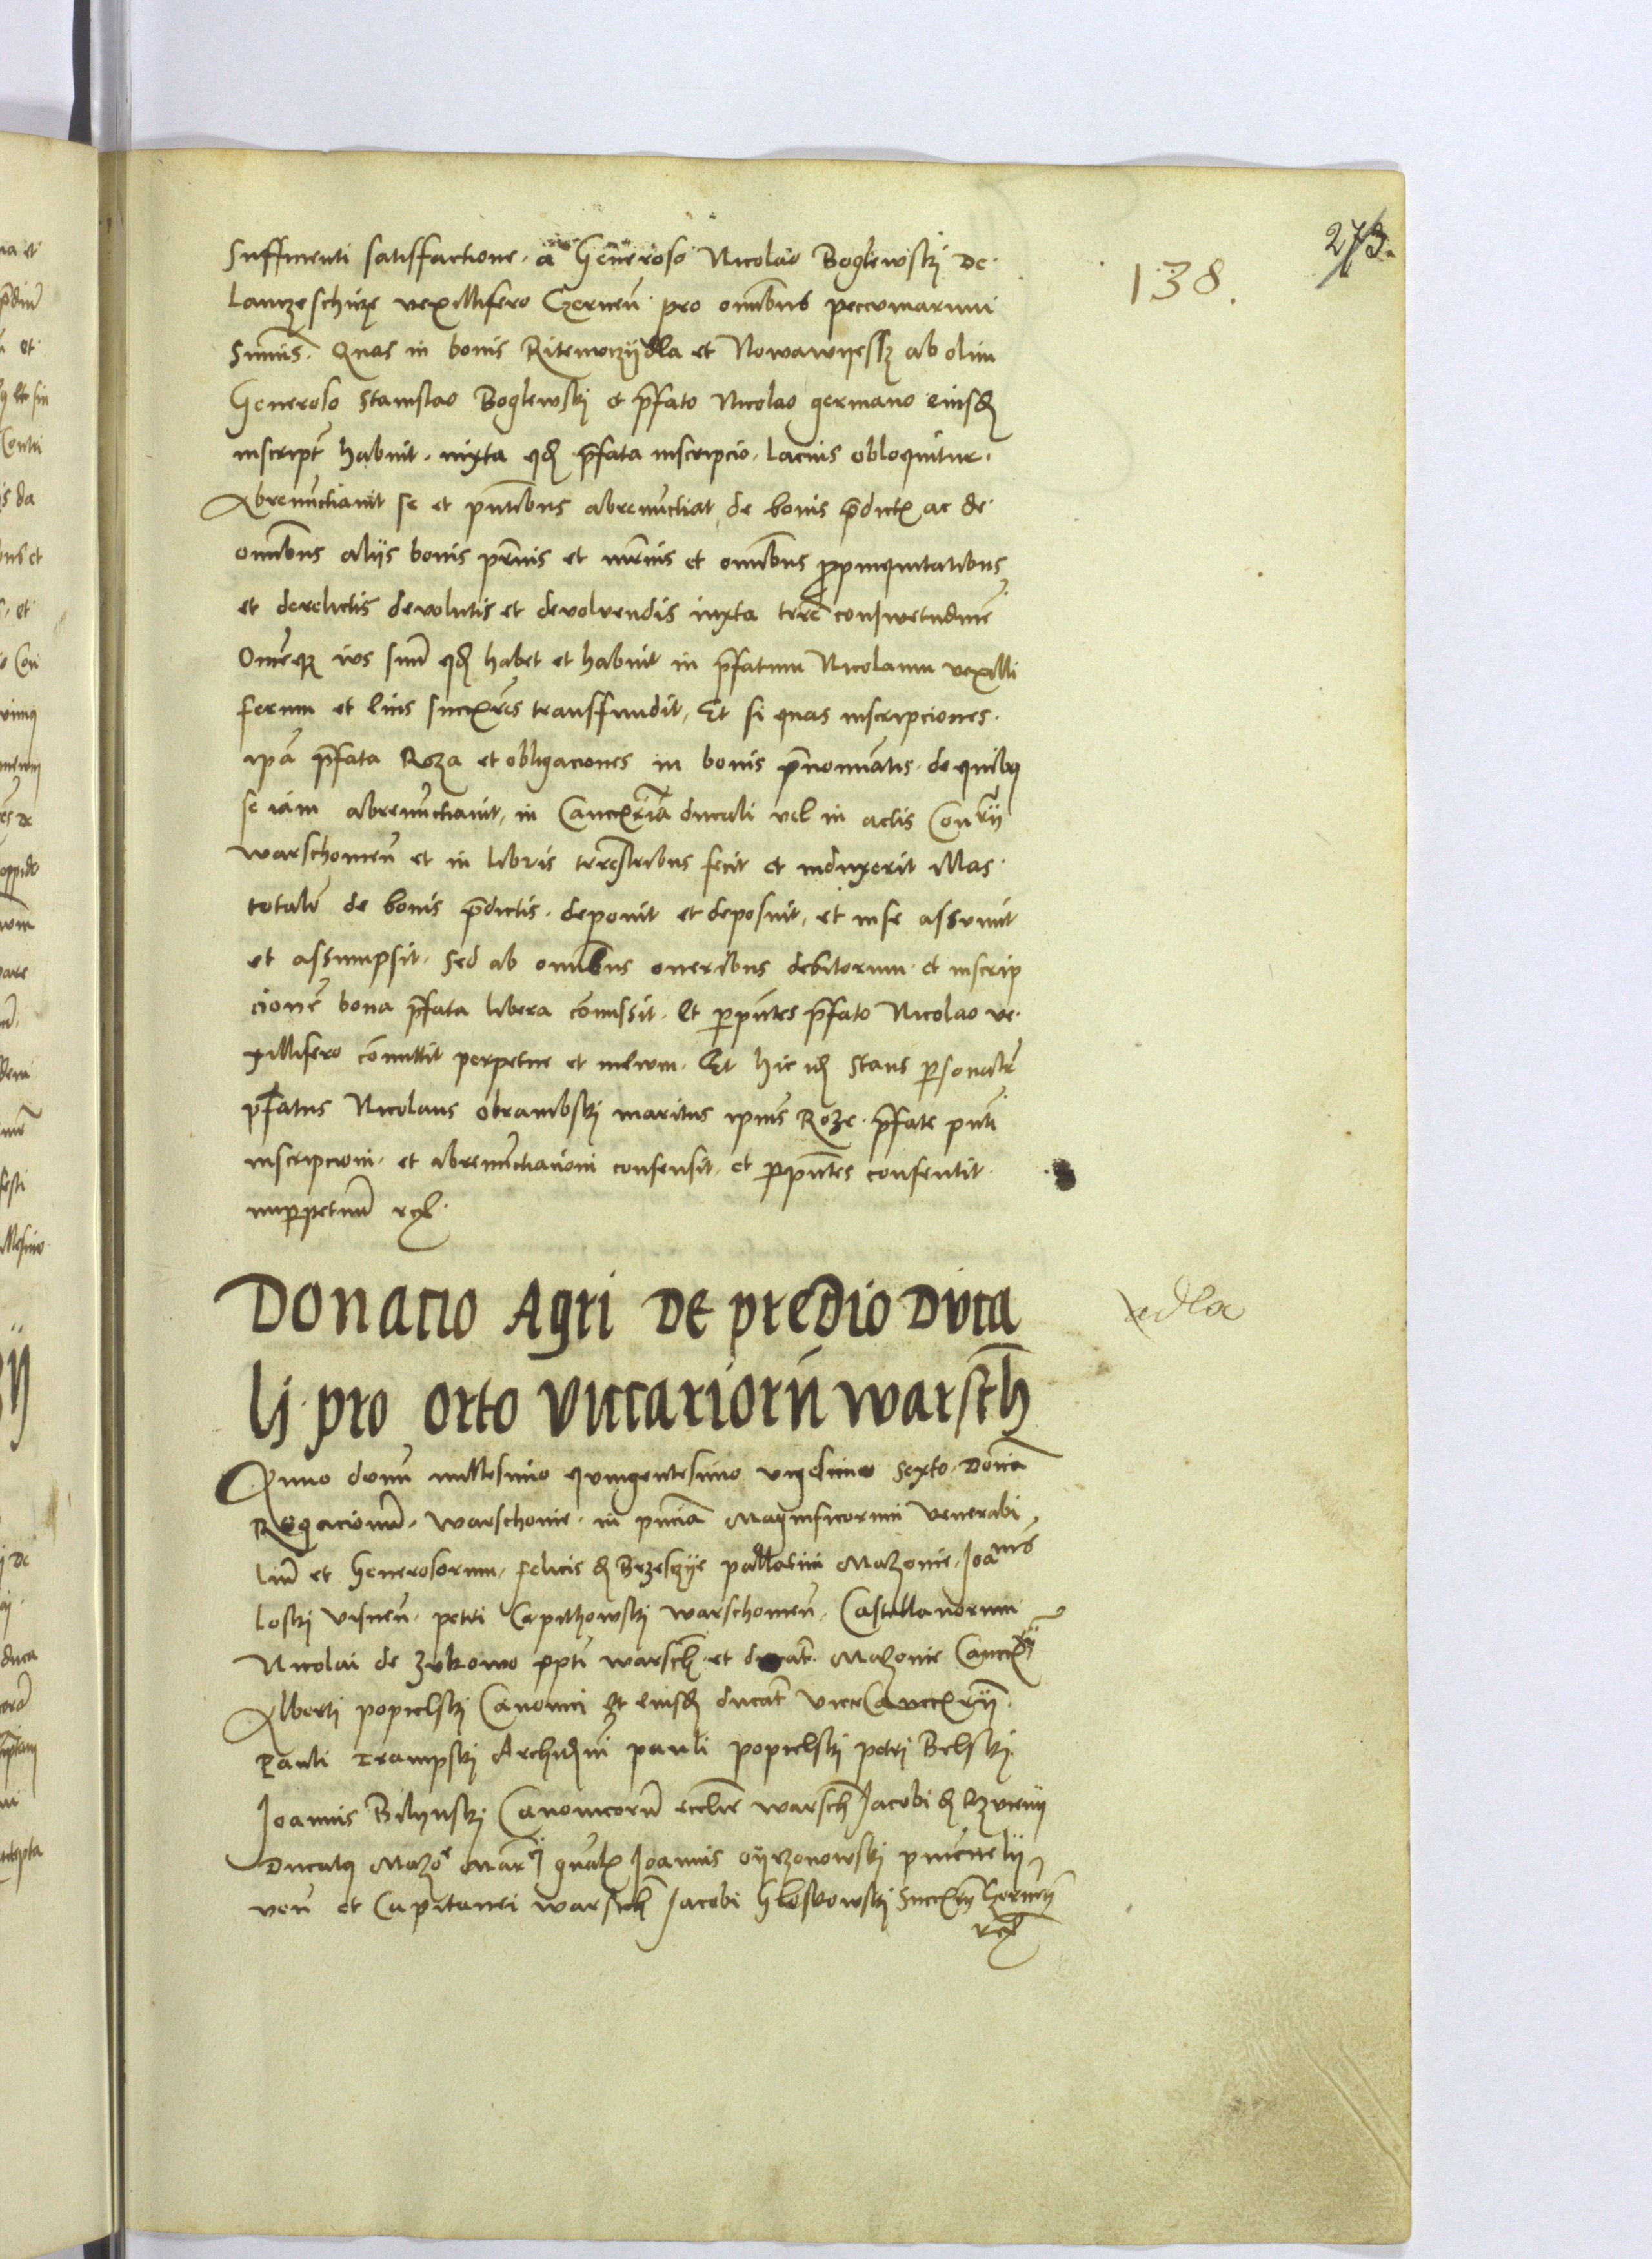 273.
138.
Sufficienti satisfactione. a Generoso Nicolao Boglewski de
Lanczeschicze vexillifero Czernen̄ pro omībus peccuniarum
Sumīs. Quas in bonis Ritemvczydla et Nowawyessz ab olim
Generoso Stanislao Boglewski et p̄fato Nicolao germano eiusd
inscript habuit. iuxta qd p̄fata inscripcio. lacius obloquitur.
Abrenūctiauit se et pn̄tibus abrenūctiat de bonis p̄dict ac de
omībus alijs bonis pr̄nis et mr̄nis et omībus propinquitatibus
et derelictis devolutis et devolvendis iuxta terre conswetudinē
Omēq ius suū qd habet et habuit in p̄fatum Nicolaum vexilli
ferum et eius succes̄res transfundit. Et si quas inscripciones
ip̄a p̄fata Roza et obligaciones in bonis p̄nominatis de quibq
se iam abrenūctiauit, in Cancr̄ia ducali vel in actis Con
warschouien̄ et in libris tr̄restribus fecit et induxerit illas
totalr̄ de bonis p̄dictis. deponit et deposuit, et in se assumit
et assumpsit. Sed ab omībus oneribus debitorum et inscrip
cionē bona p̄fata libera comissit. Et per pn̄tes p̄fato Nicolao ve
xillifero comittit perpetue et in evum. Et hic id Stans personalr̄
p̄fatus Nicolaus Obrambski maritus ip̄ius Roze p̄fate pn̄ti
inscripcioni. et abrenūctiacioni consensit. et per pn̄tes consentit
inperpetuū rc.
Donacio Agri de predio Duca
li pro orto viccariorū warsch
adla
Anno domī millesimo quingentesimo vigesimo sexto. Domīca
Rogacionū. Warschouie. in pn̄cia Magnificorum Venerabi
liū et Generosorum. Felicis d Brzeszye pallatini Mazouie. Joannis
Loski visnen̄. petri Capithowski warschouien̄. Castellanorum
Nicolai de Zukowo ppti warsch et ducat Mazouie Canc
Alberti popielski Canonici et eiusd ducat vice Cancr̄ij
Pauli Trampski Archid pauli popielski petri Belski
Joannis Bilynski Canonicorū ecclie warsch Jacobi d
Ducatq Mazo Mar Joannis oyrzonowski
ven̄ et Capitanei warsch Jacobi Gloskowski
rc